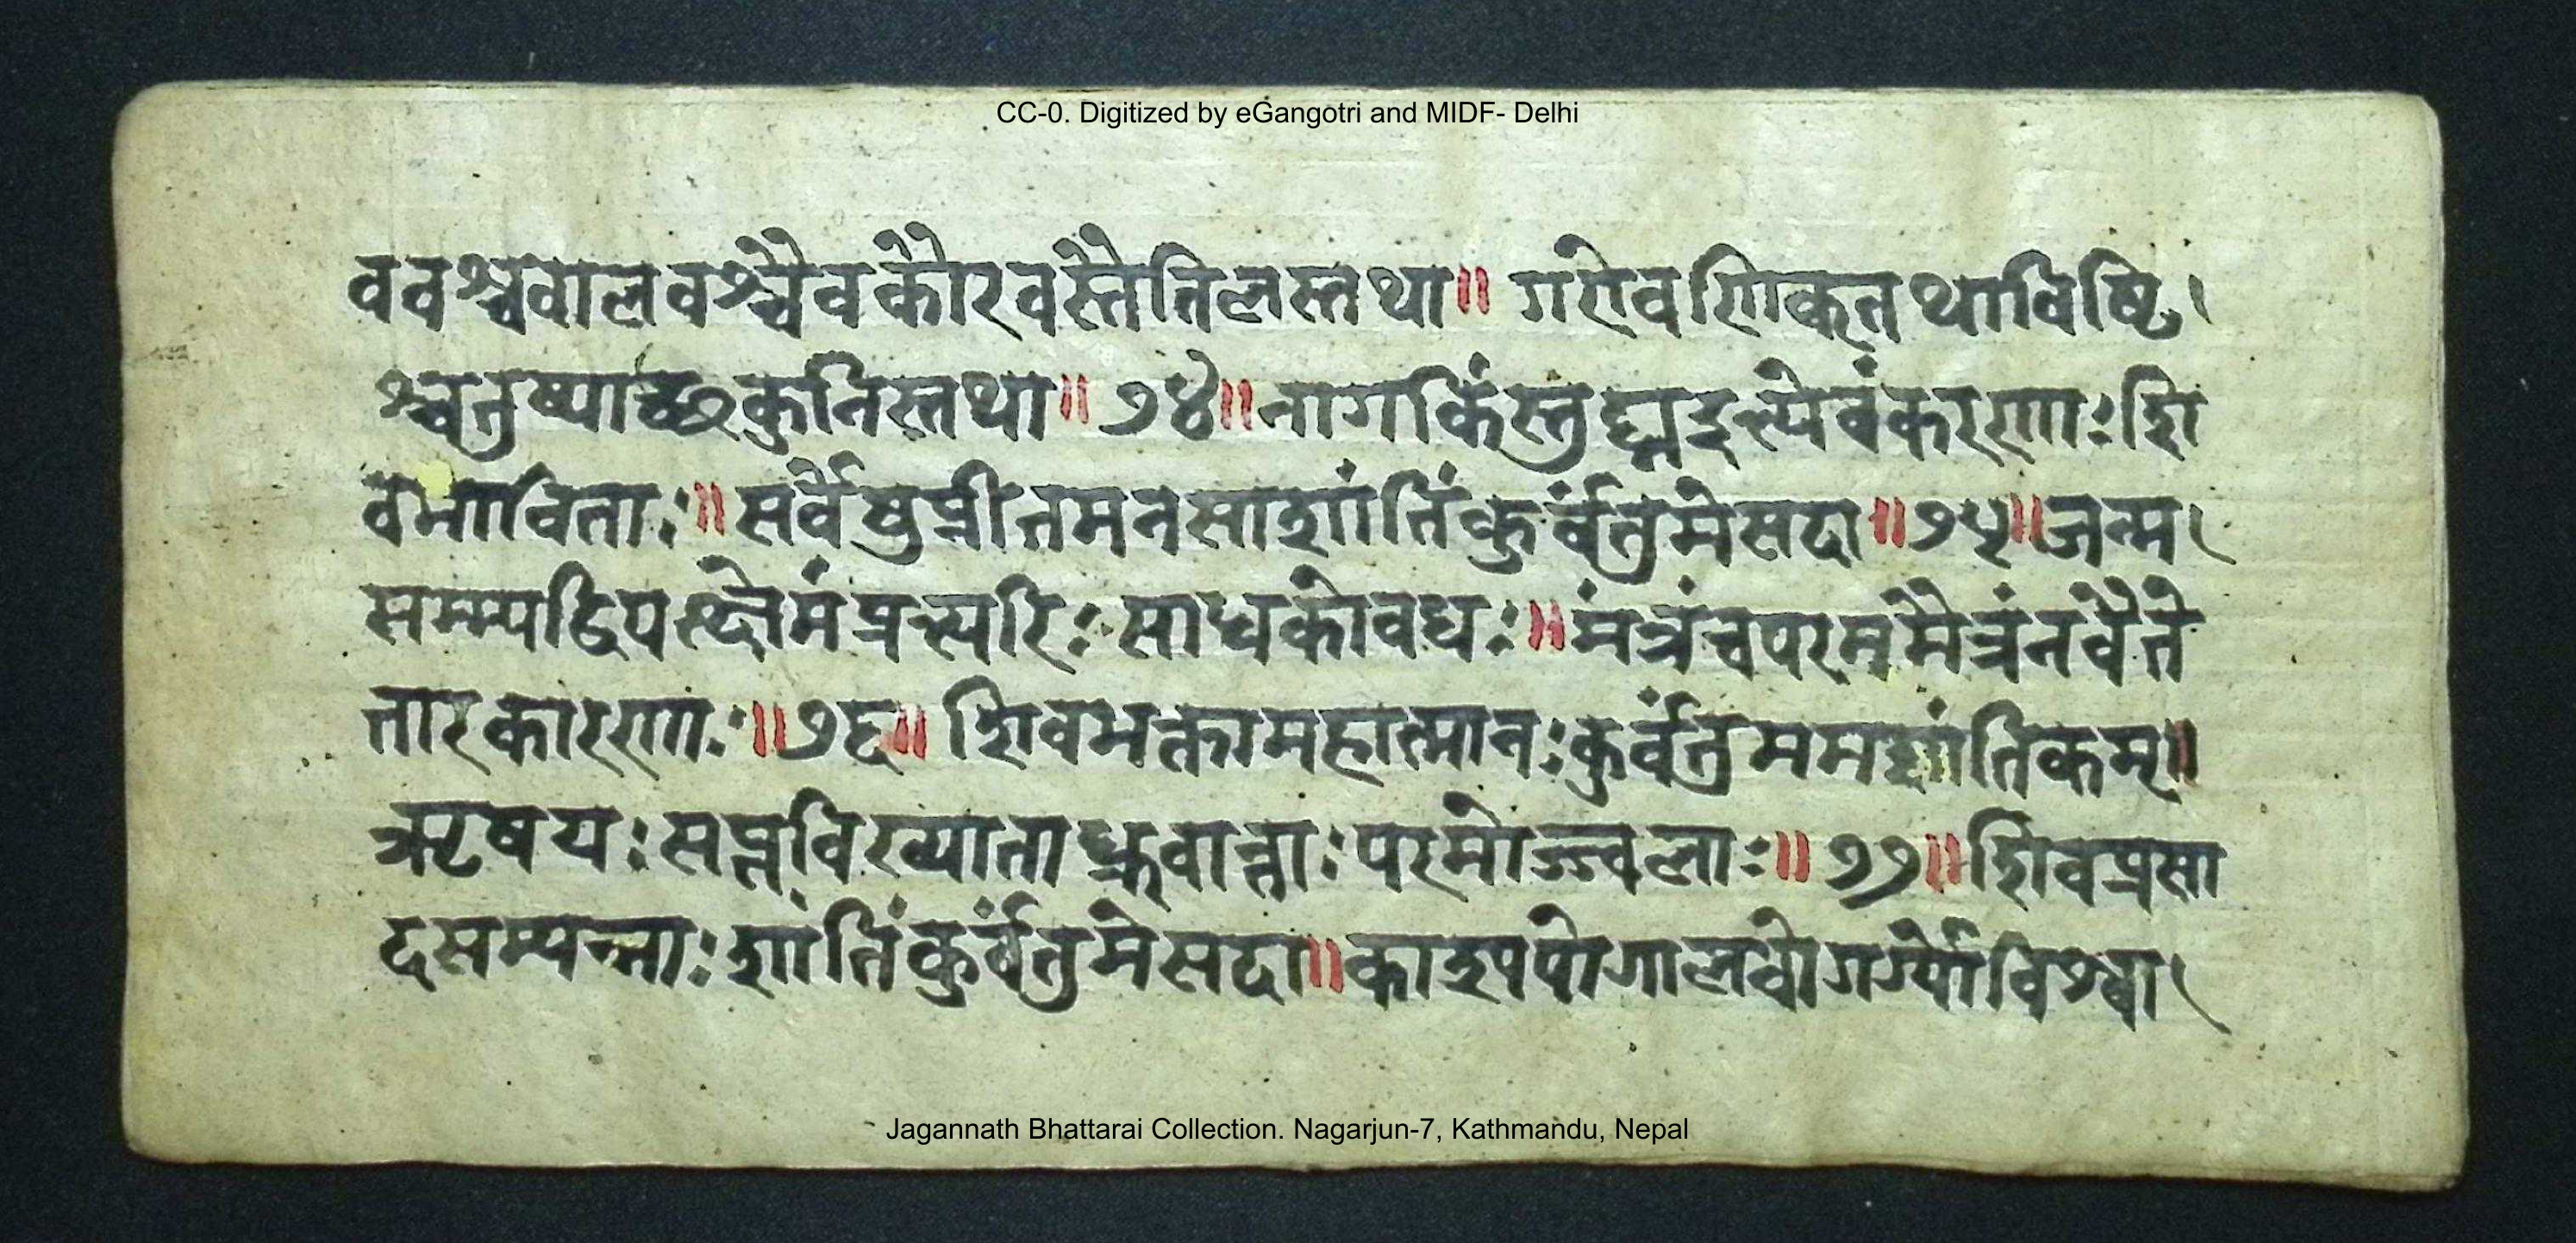 CC-0. Digitized by eGangotri and MIDF- Delhi
ववश्चवालवश्चैवकौरवस्तैतिलस्तथा॥ गरोवणिकतथाविष्टि
श्चतुष्पाच्छकुनिस्तथा॥ ७४॥ नागकिंस्तुघ्नइत्येवंकरणाः शि
वभाविताः॥ सर्वेषुप्रीतमनसाशांतिंकुर्वंतुमेसदा॥ ७५॥ जन्म
सम्पद्विपत्क्षेमंप्रत्यरिः साधकोवधः॥ मंत्रंचपरममैत्रंनवैते
तारकारणाः॥ ७६॥ शिवभक्तामहात्मानः कुर्वंतुममशांतिकम्॥
ऋषयः सप्तविख्याताध्रुवान्ताः परमोज्ज्वलाः॥ ७७॥ शिवप्रसा
दसम्पन्नाः शांतिंकुर्वंतुमेसदा॥ काश्यपोगालवोगर्ग्योविश्वा
Jagannath Bhattarai Collection. Nagarjun-7, Kathmandu, Nepal